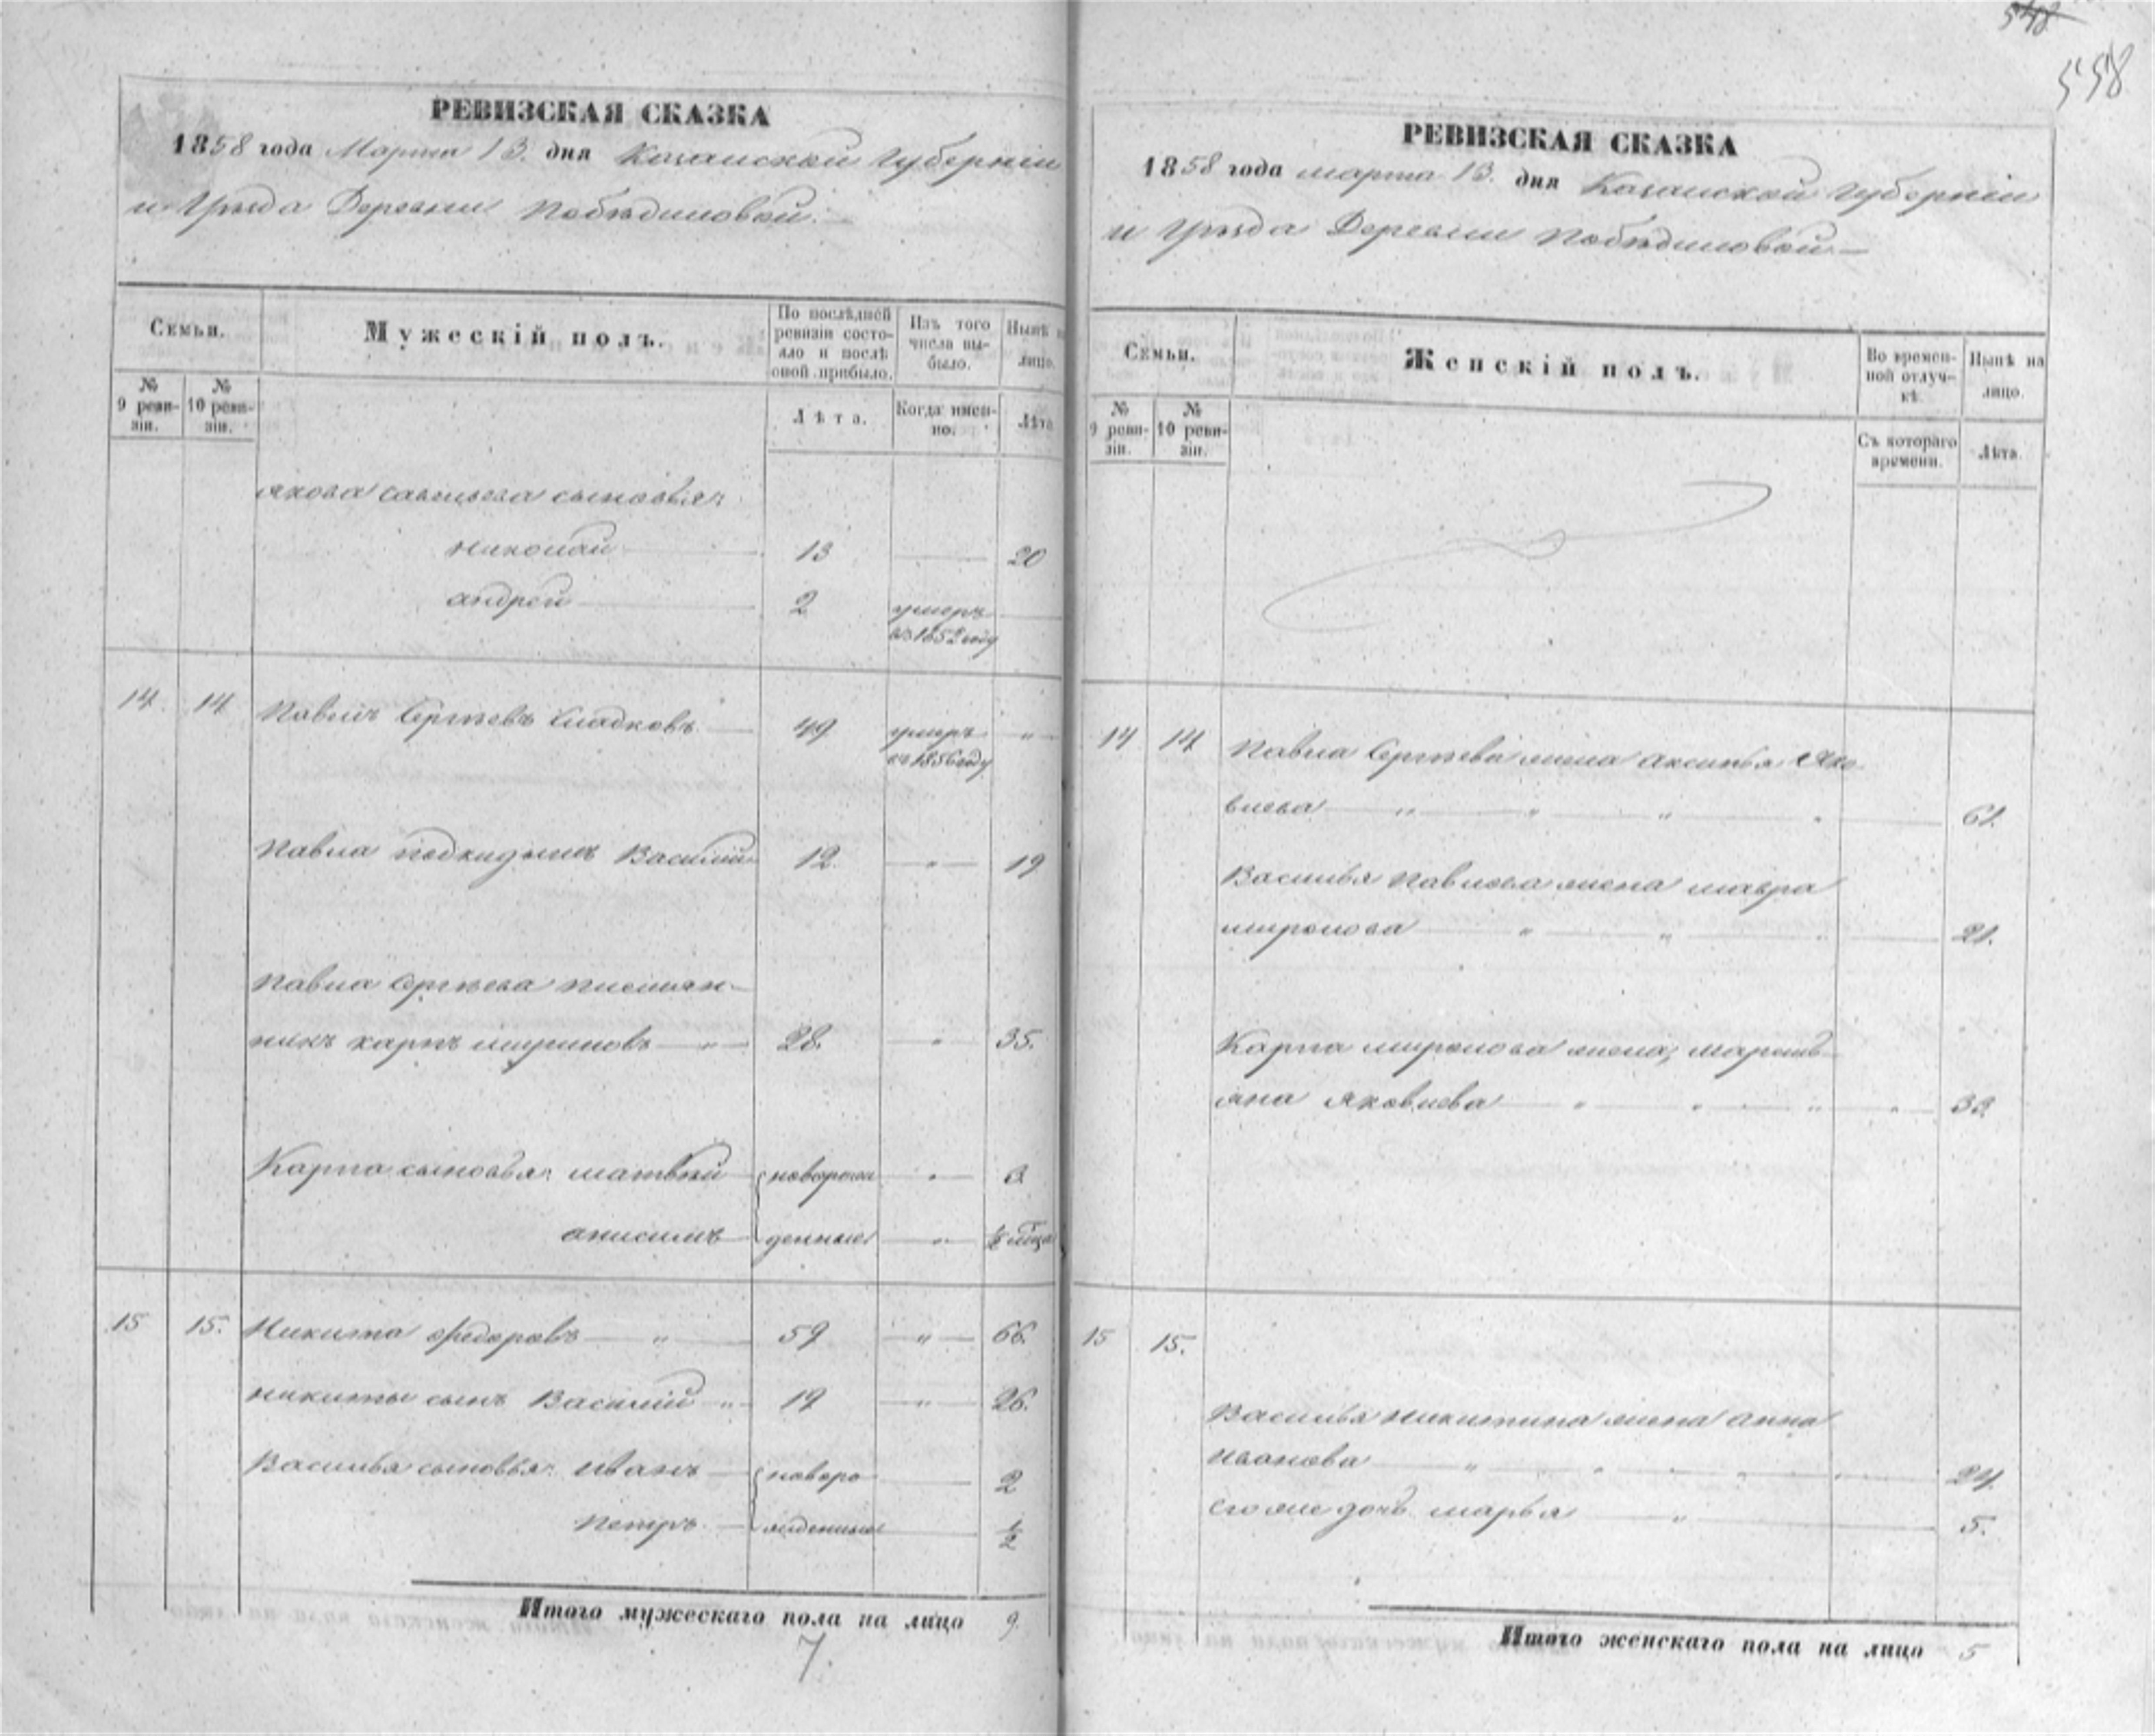 548
558
РЕВИЗСКАЯ СКАЗКА
1858 года Марта 13. дня Казанской Губерніи
и Уѣзда Деревни Побѣдиловой.
Семьи.
Мужескій полъ.
По послѣдней ревизіи состояло и послѣ оной прибыло.
Изъ того числа выбыло.
Нынѣ на лицо.
№ 9 ревизіи.
№ 10 ревизіи.
Лѣта.
Когда именно.
Лѣта
Якова Савельева сыновья:
Николай 13 20
Андрей 2 умеръ
въ 1852 году
14 14 Павелъ Сергѣевъ Сладковъ 49 умеръ "
въ 1856 году
Павла подкидышъ Василій 12. " 19
Павла Сергѣева племян-
никъ Карпъ Мироновъ " 28. " 35.
Карпа сыновья: Матвѣй новорож " 3
Анисимъ денные " ½ мѣсяца
15 15. Никита Федоровъ " 59 " 66.
Никиты сынъ Василій " 19 " 26.
Василья сыновья: Иванъ новоро 2
Петръ жденные ½
Итого мужескаго пола на лицо 9.
7.
РЕВИЗСКАЯ СКАЗКА
1858 года марта 13. дня Казанской Губерніи
и Уѣзда Деревни Побѣдиловой
Семьи.
Женскій полъ.
Во временной отлучкѣ.
Нынѣ на лицо.
№ 9 ревизіи.
№ 10 ревизіи.
Съ котораго времени.
Лѣта.
14 14 Павла Сергѣева жена Аксинья Яко-
влева " " " " 61.
Василья Павлова жена Мавра
Миронова " " " 21.
Карпа Миронова жена, Марем-
яна Яковлева " " " " 33.
15 15.
Василья Никитина жена Анна
Иванова " " " 24.
Его же дочь Марья " 5.
Итого женскаго пола на лицо 5